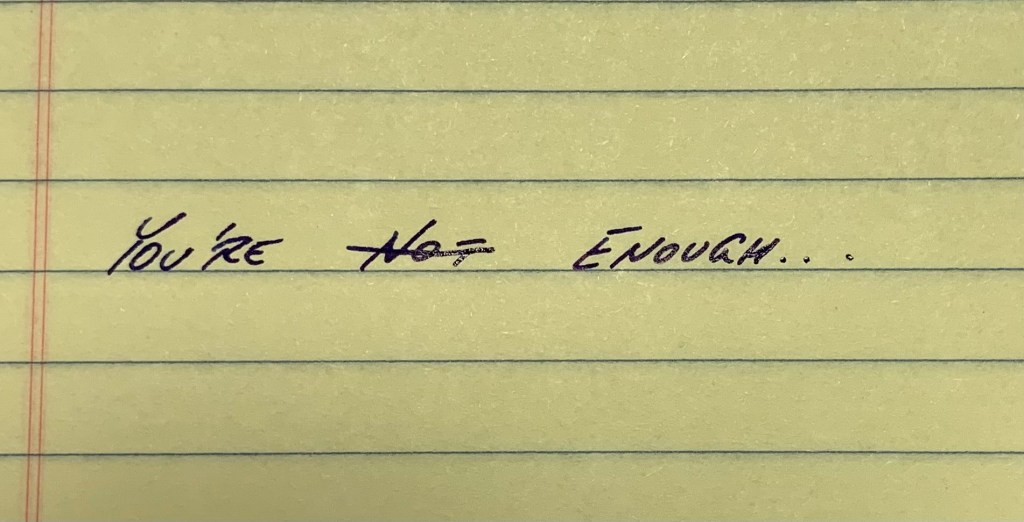 YOU'RE NOT ENOUGH...